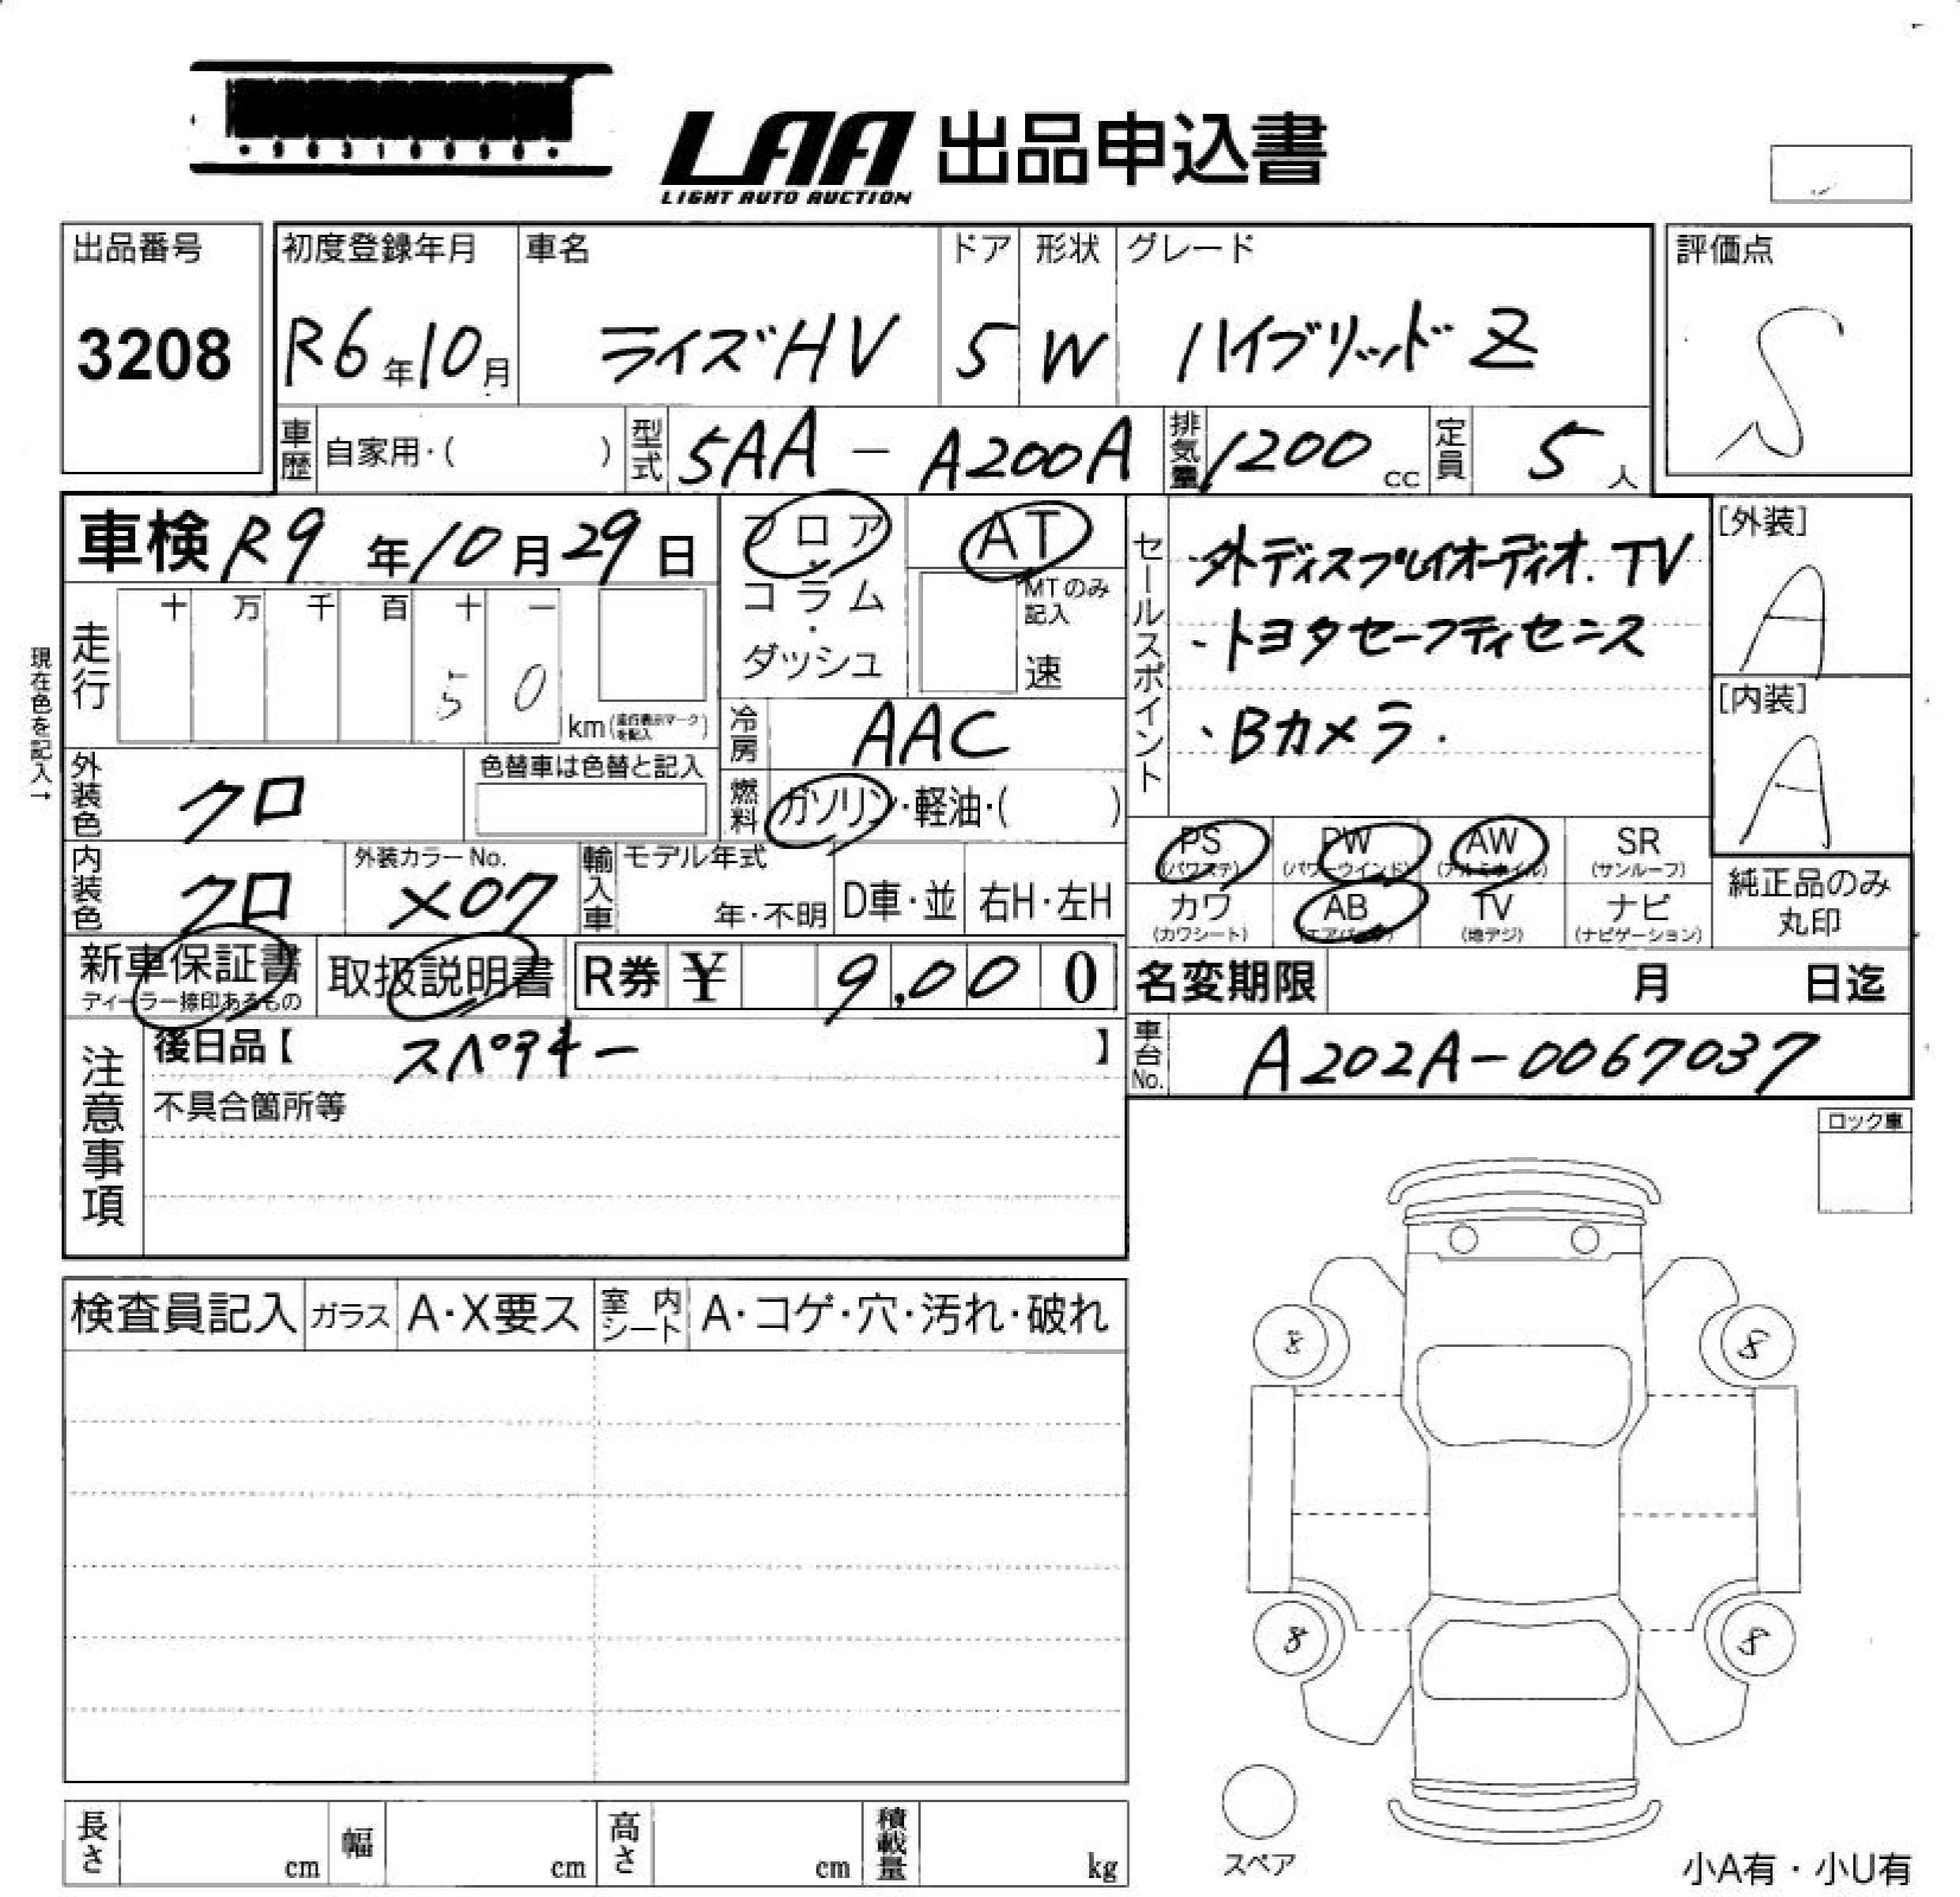 LAA 出品申込書
LIGHT AUTO AUCTION
出品番号
3208
初度登録年月
R6年10月
車名
ライズHV
ドア
5
形状
W
グレード
ハイブリッド Z
評価点
S
車歴
自家用・( )
型式
5AA-A200A
排気量
1200 cc
定員
5人
車検 R9年10月29日
現在色を記入→
走行
十 万 千 百 十 一
5 0
km
フロア・コラム・ダッシュ
AT
MTのみ記入
速
冷房
AAC
燃料
ガソリン・軽油・( )
外装色
クロ
色替車は色替と記入
内装色
クロ
外装カラーNo.
X07
輸入車
モデル年式
年・不明
D車・並
右H・左H
セールスポイント
・外ディスプレイオーディオ.TV
・トヨタセーフティセンス
・Bカメラ.
[外装]
A
[内装]
A
PS
(パワステ)
PW
(パワーウインド)
AW
(アルミホイル)
SR
(サンルーフ)
カワ
(カワシート)
AB
(エアバック)
TV
(地デジ)
ナビ
(ナビゲーション)
純正品のみ
丸印
新車保証書
ディーラー捺印あるもの
取扱説明書
R券 ¥ 9,000
名変期限 月 日迄
車台No.
A202A-0067037
注意事項
後日品【 スペアキー 】
不具合箇所等
ロック車
検査員記入
ガラス
A・X要ス
室内シート
A・コゲ・穴・汚れ・破れ
8
8
8
8
スペア
長さ
cm
幅
cm
高さ
cm
積載量
kg
小A有・小U有